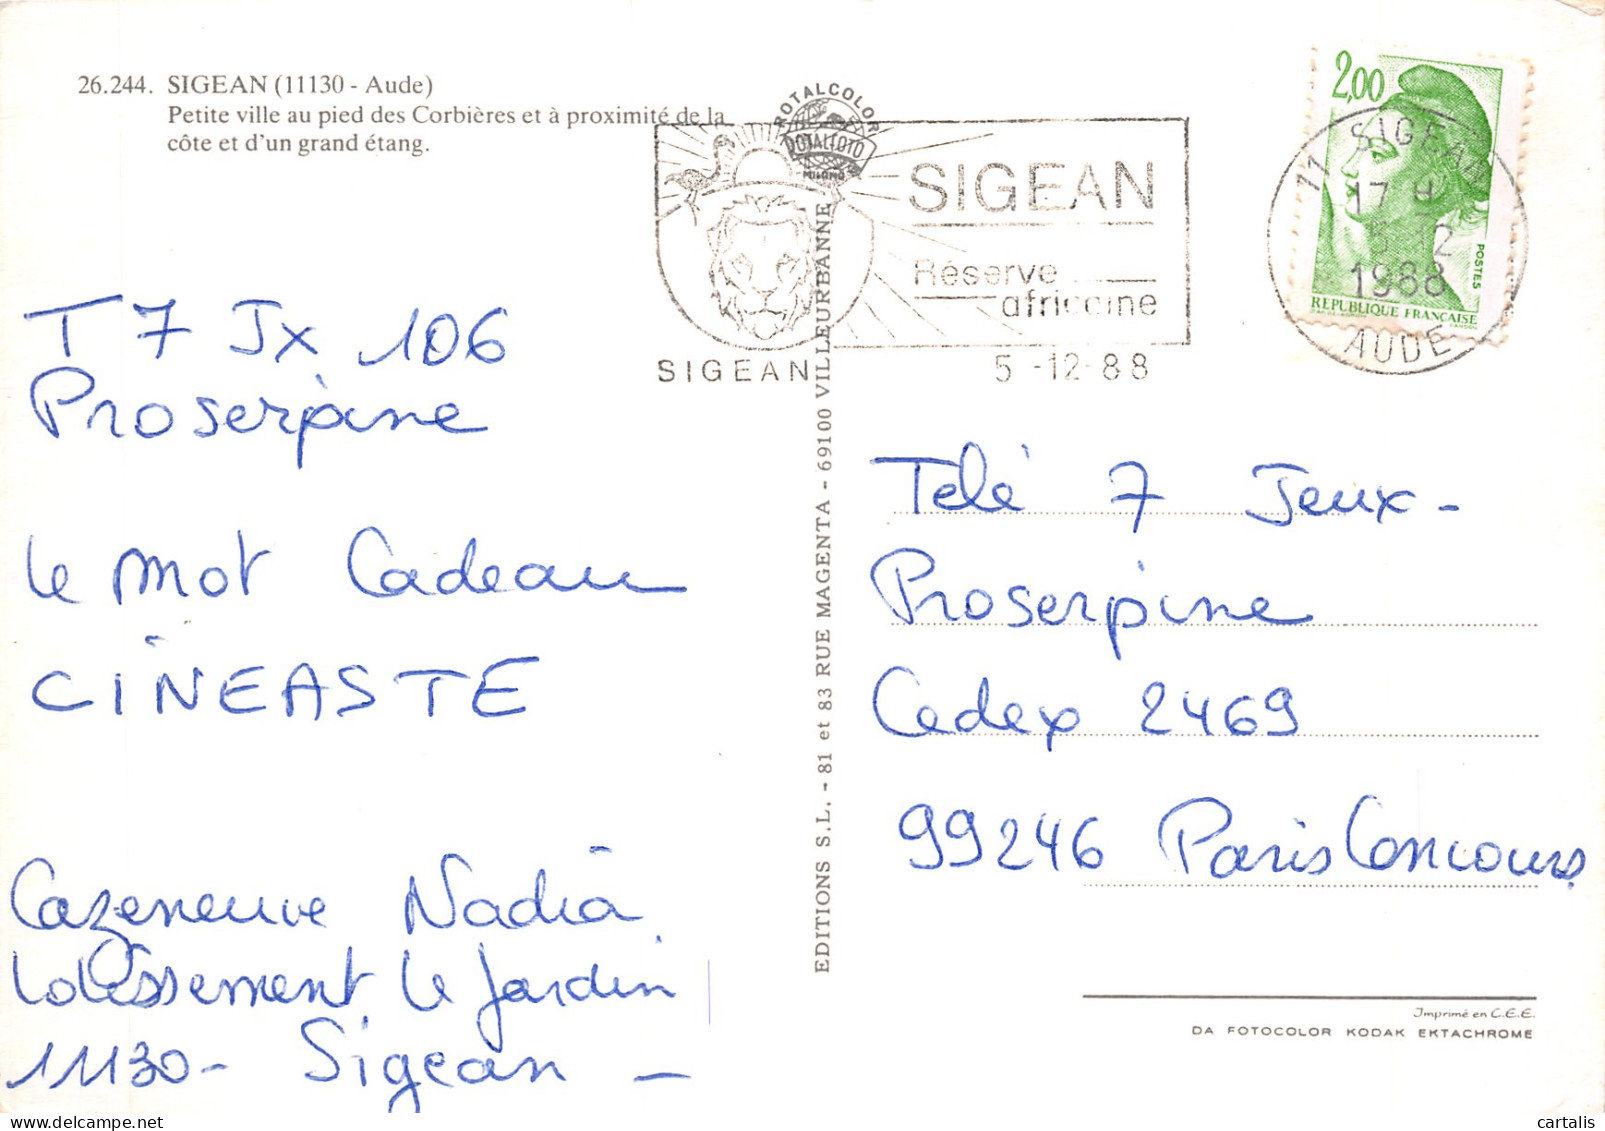 26.244. SIGEAN (11130 - Aude)
Petite ville au pied des Corbières et à proximité de la
côte et d'un grand étang.
ROTALCOLOR
ROTALFOTO
MILANO
SIGEAN
Réserve
africaine
SIGEAN
5 -12- 88
2,00
POSTES
REPUBLIQUE FRANÇAISE
11 SIGEAN
17 H
5-12
1988
AUDE
T 7 Jx 106
Proserpine
le mot Cadeau
CINEASTE
Cazeneuve Nadia
Lotissement le Jardin
11130 - Sigean -
EDITIONS S.L. - 81 et 83 RUE MAGENTA - 69100 VILLEURBANNE
Telé 7 Jeux -
Proserpine
Cedex 2469
99246 Paris Concours
Imprimé en C.E.E.
DA FOTOCOLOR KODAK EKTACHROME
cartalis